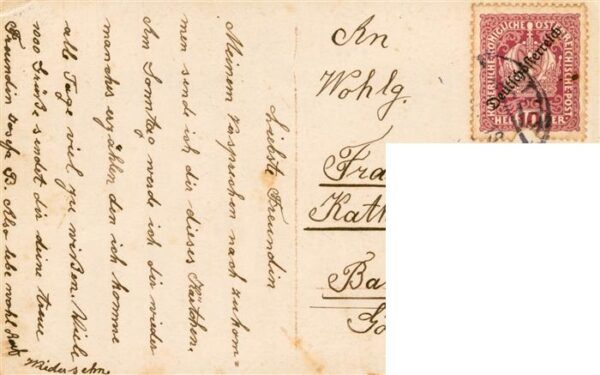 Liebste Freundin
Meinem Versprechen nach zukom=
men sende ich dir dieses Kärtchen.
Am Sonntag werde ich dir wieder
manches erzählen den ich komme
alle Tage viel zu wißen. Viele
1000 Grüße sendet dir deine treue
Freundin Josefa B. Also lebe wohl Auf
Wiedersehn.
An
Wohlg.
Fra
Kath
Ba
KAISERLICHE KÖNIGLICHE ÖSTERREICHISCHE POST
Deutschösterreich
10
HELLER